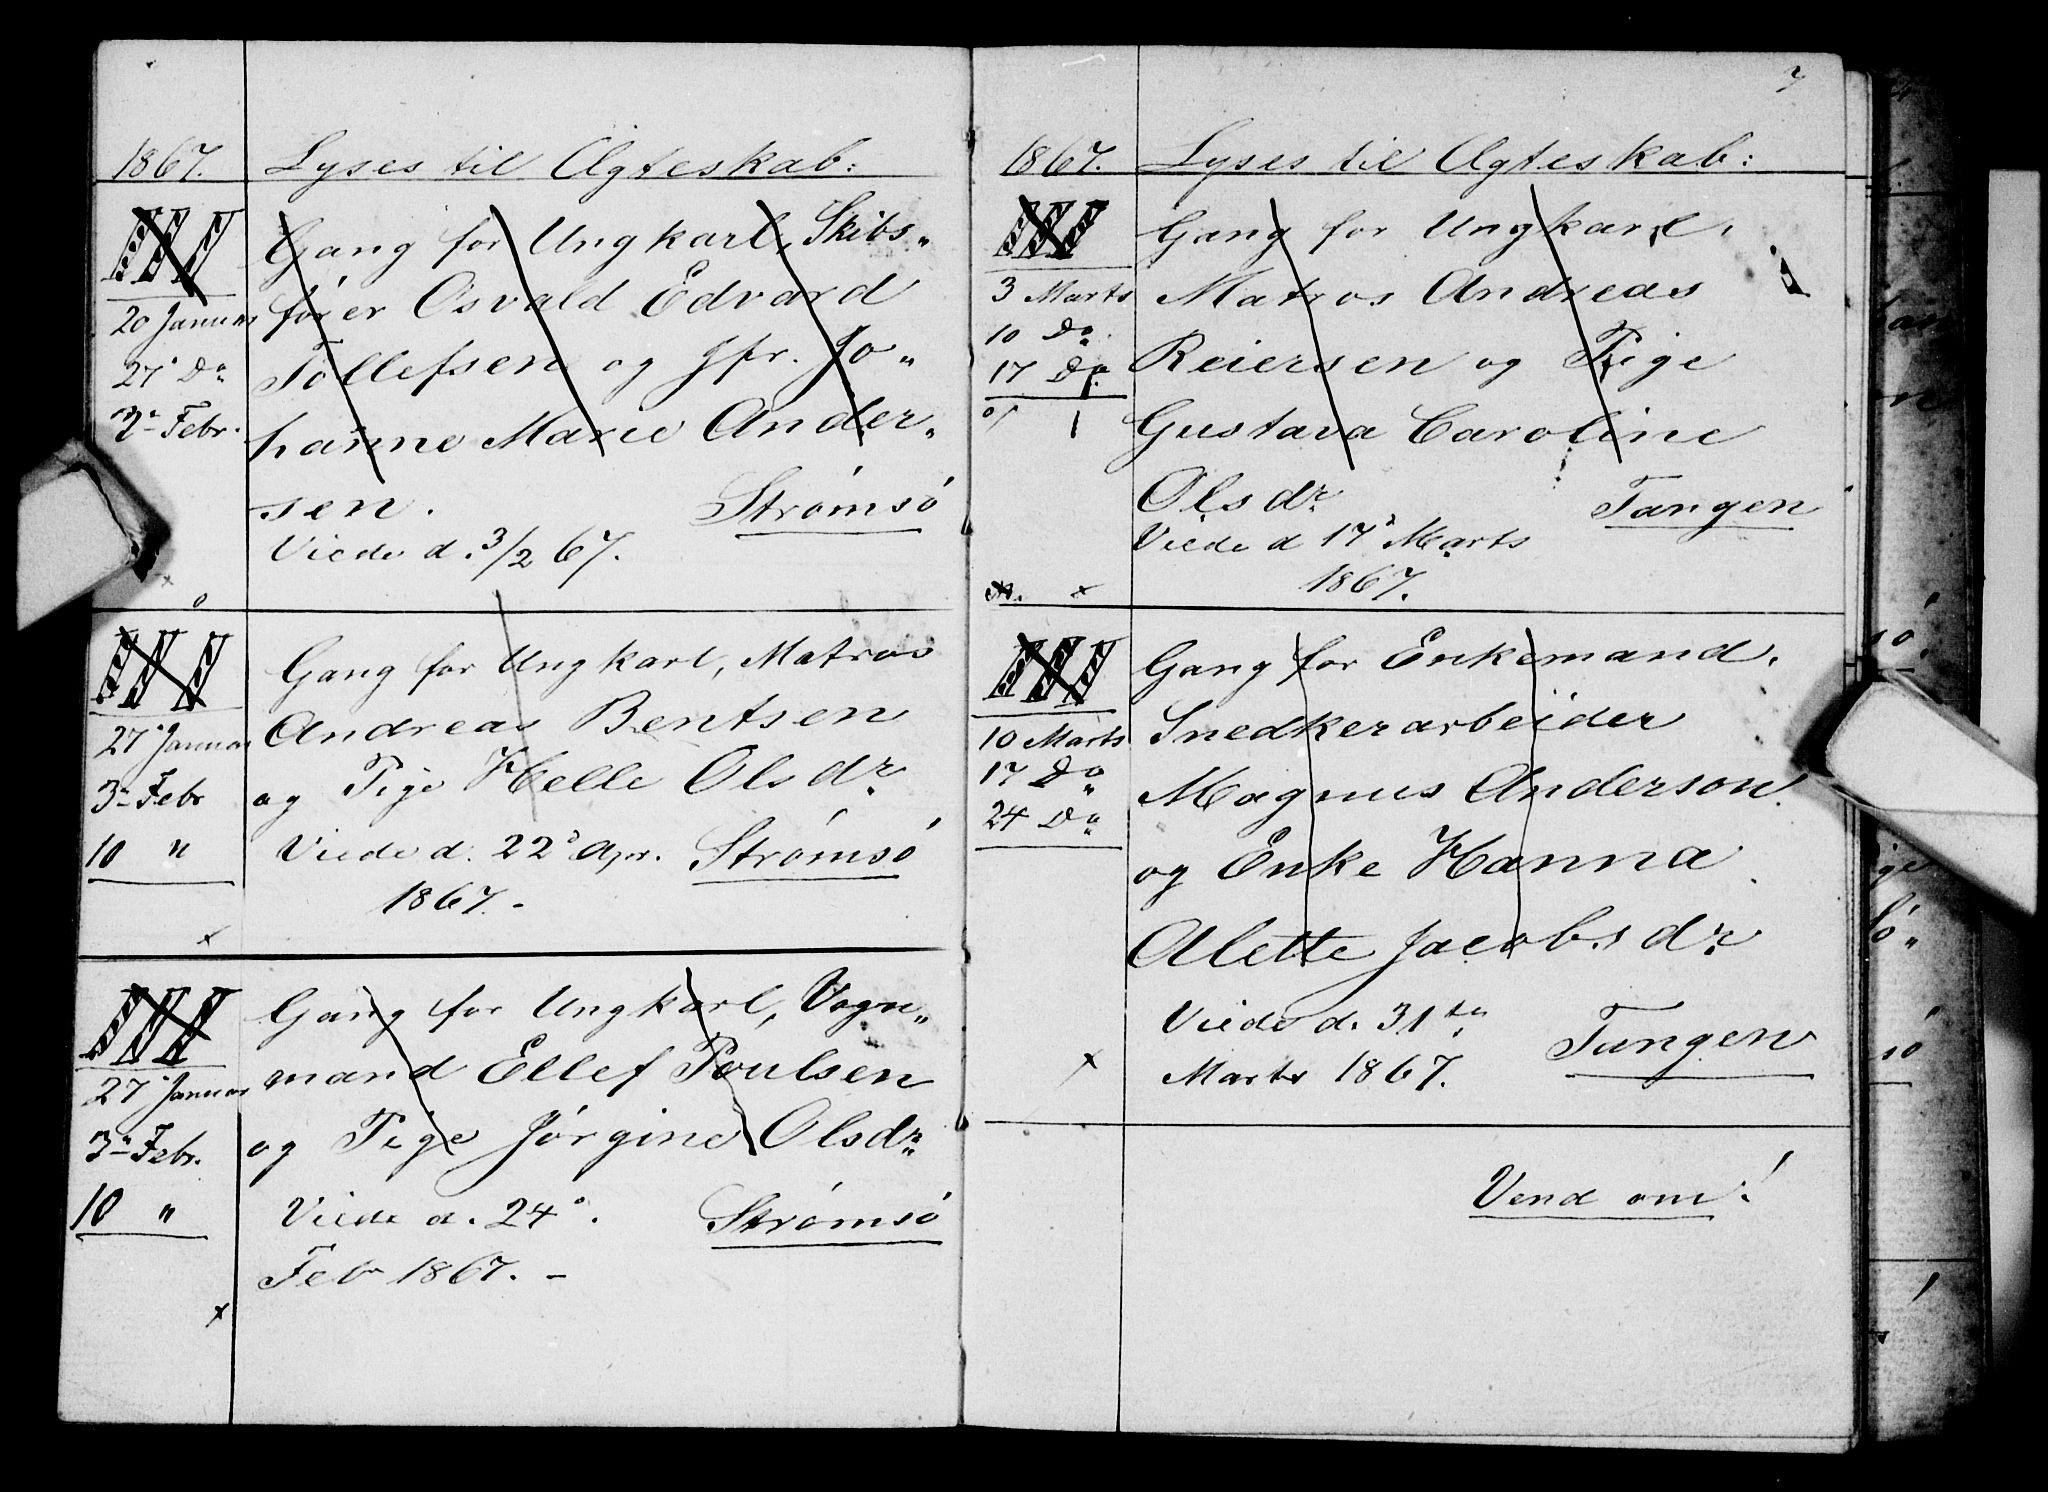 1867. Lyses til Ægteskab:
III Gang for Ungkarl, Skibs„
20 Januar fører Osvald Edvard
27 Do Tollefsen og Jfr. Jo„
3 Febr. hanne Marie Ander„
sen. Strømsø
Viede d. 3/2 67.
III Gang for Ungkarl, Matros
27 Januar Andreas Bentsen
3 Febr og Pige Helle Olsdr
10 " Viede d. 22 Apr. Strømsø
1867. -
III Gang for Ungkarl, Vogn„
27 Januar mand Ellef Poulsen
3 Febr. og Pige Jørgine Olsdr
10 " Viede d. 24. Strømsø
Febr 1867. -
1867. Lyses til Ægteskab:
III Gang for Ungkarl,
3 Marts Matros Andreas
10 Do
17 Do Reiersen og Pige
Gustava Caroline
Olsdr Tangen
Viede d 17 Marts
1867.
III Gang for Enkemand,
10 Marts Snedkerarbeider
17 Do Magnus Anderson
24 Do og Enke Hanna
Alette Jacobsdr
Viede d. 31te Tangen
Marts 1867.
Vend om!